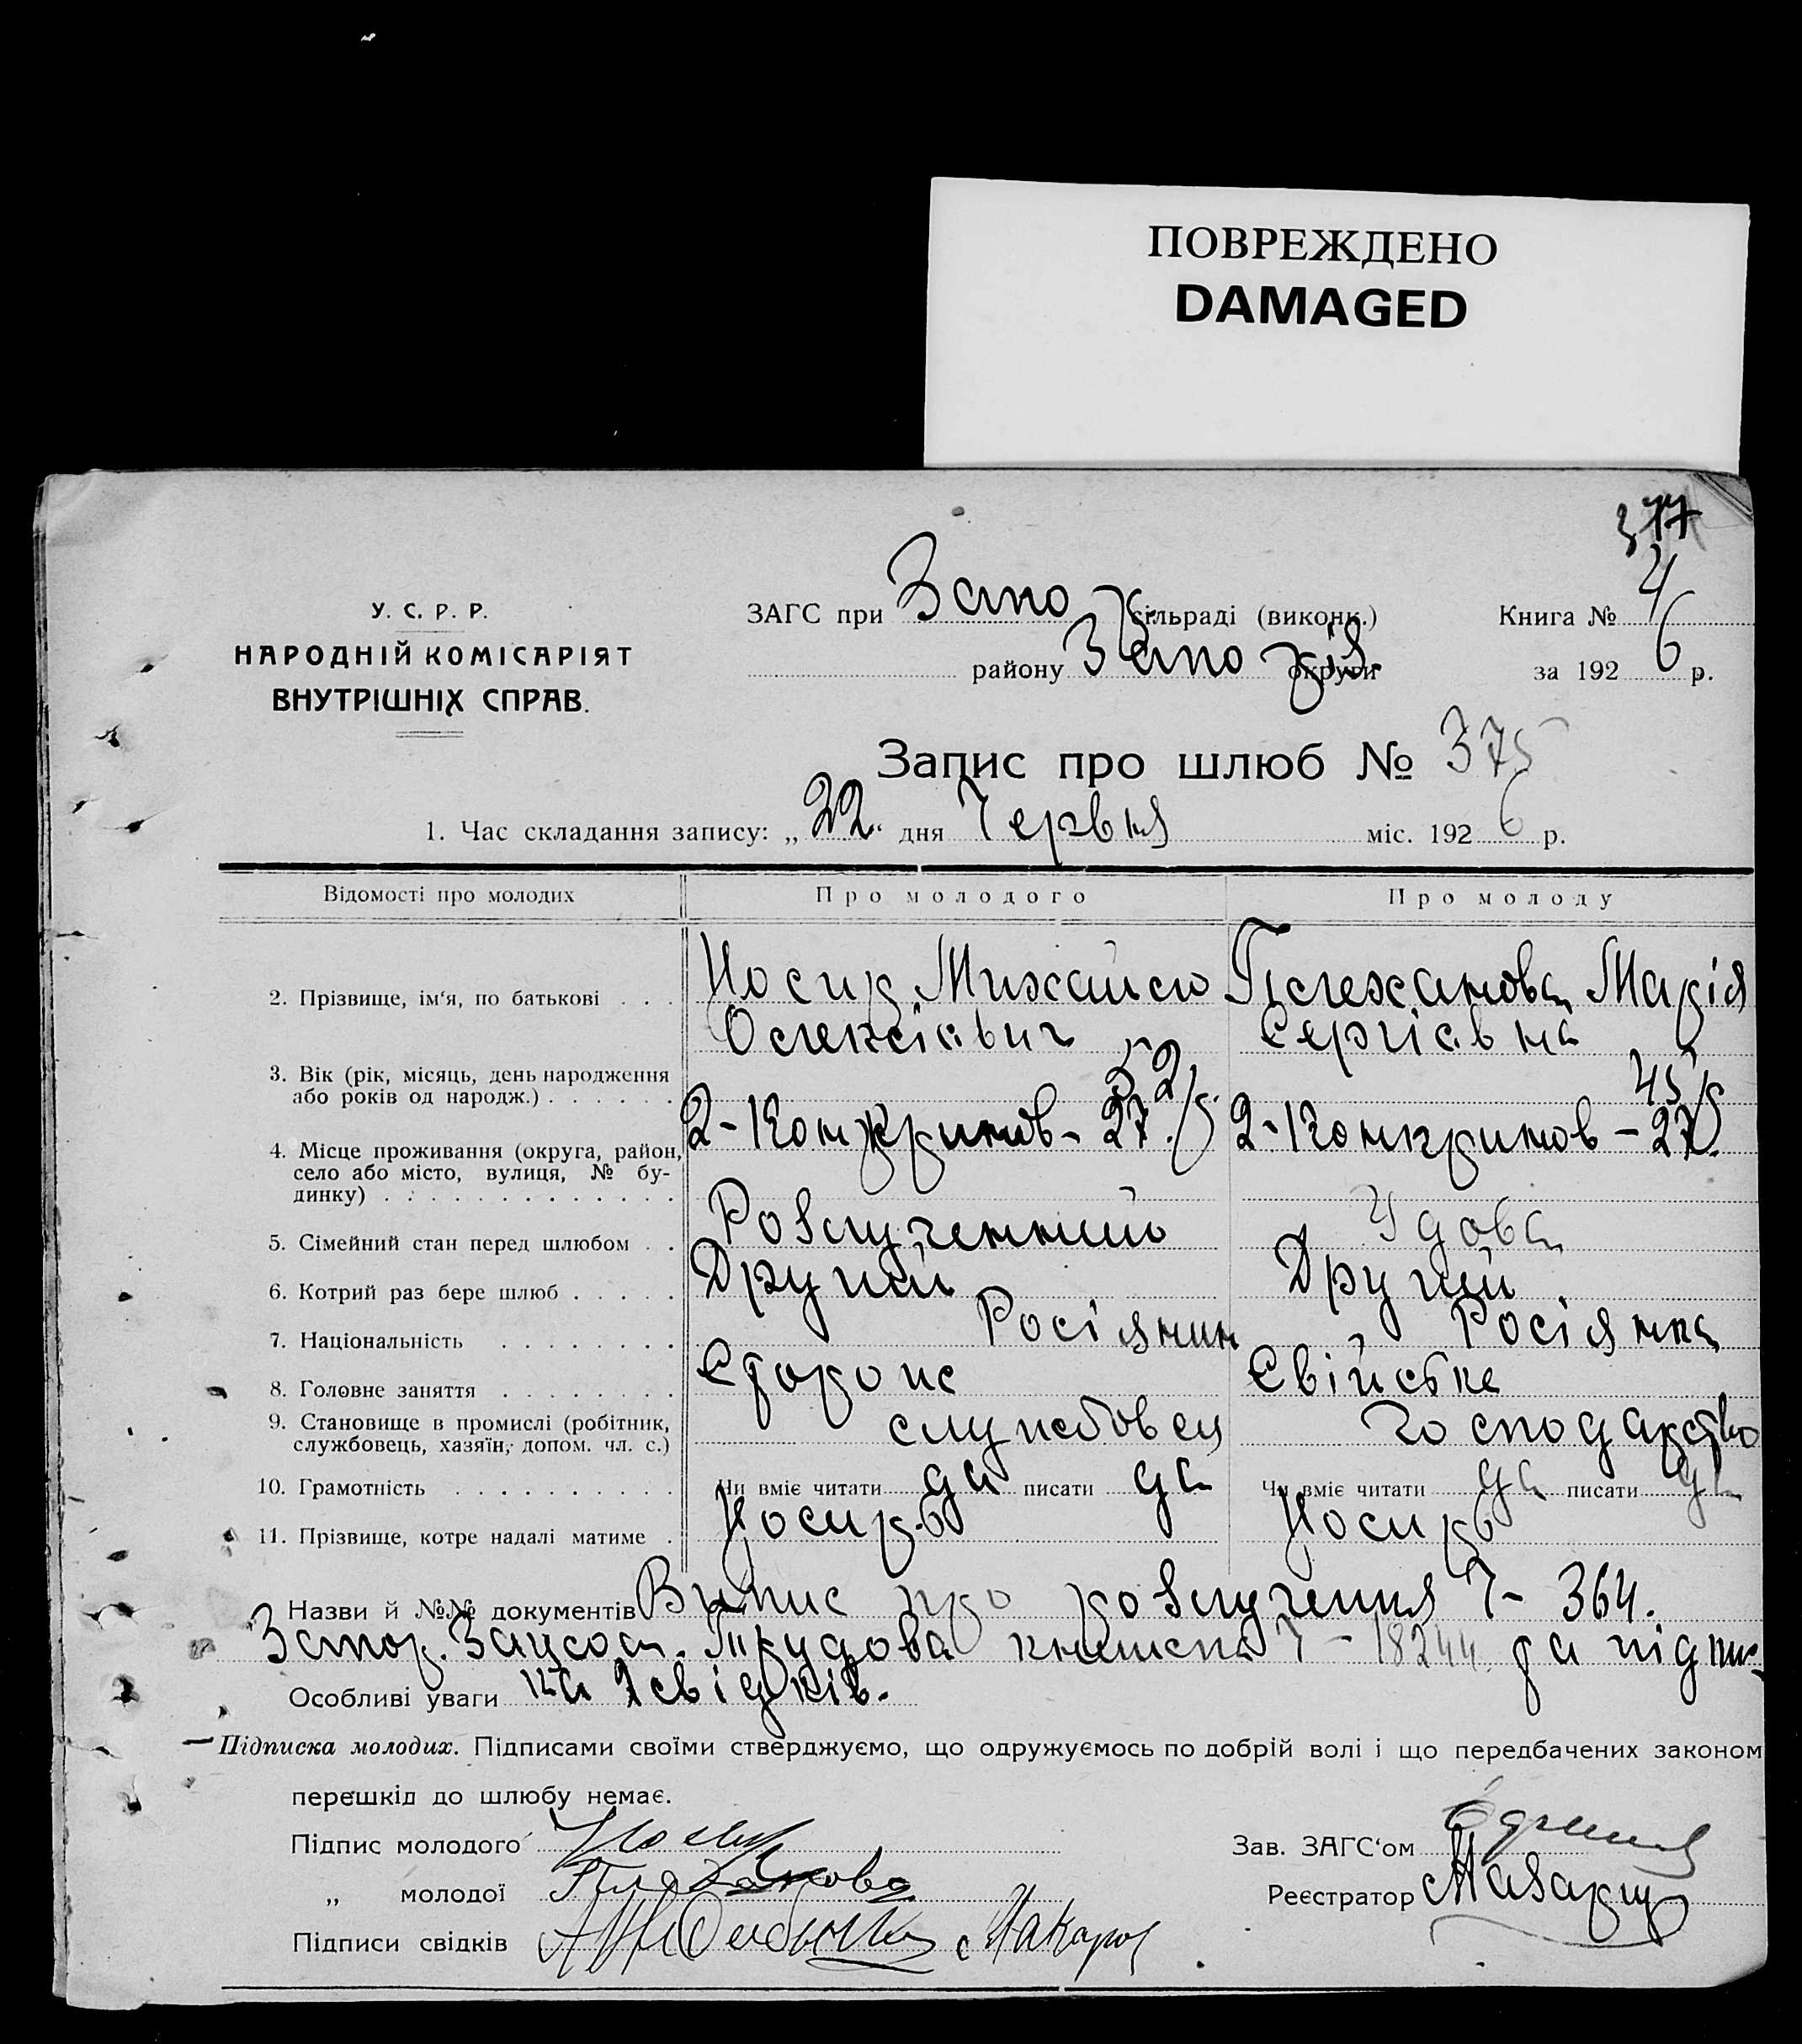 ПОВРЕЖДЕНО
DAMAGED
377
У. С. Р. Р.
НАРОДНІЙ КОМІСАРІЯТ
ВНУТРІШНІХ СПРАВ.
ЗАГС при Запо сільраді (виконк.) Книга № 4
району Запо округи за 1926 р.
Запис про шлюб № 375
1. Час складання запису: „22“ дня Червня міс. 1926 р.
Відомості про молодих Про молодого Про молоду
2. Прізвище, ім‘я, по батькові . . . Носир Михайло Плеханова Марія
Олексієвич Сергієвна
3. Вік (рік, місяць, день народження
або років од народж.) . . . . . . 52 45
4. Місце проживання (округа, район,
село або місто, вулиця, № бу-
динку) . . . . . . . . . . . . . 2- 27. 2- 27.
5. Сімейний стан перед шлюбом . . Розлученний Удова
6. Котрий раз бере шлюб . . . . . Другий Другий
7. Національність . . . . . . . . Росіянин Росіянка
8. Головне заняття . . . . . . . . Сторож Свійське
9. Становище в промислі (робітник,
службовець, хазяїн, допом. чл. с.) службовец господарство
10. Грамотність . . . . . . . . . . Чи вміє читати да писати да Чи вміє читати да писати да
11. Прізвище, котре надалі матиме . Носирь Носирь
Назви й №№ документів Випис про розлучення Ч- 364.
Запор. Трудова книжка Ч- 18244 да підпис
Особливі уваги ка 2 свідків.
Підписка молодих. Підписами своїми стверджуємо, що одружуємось по добрій волі і що передбачених законом
перешкід до шлюбу немає.
Підпис молодого Носир
Зав. ЗАГС‘ом
„ молодої Плеханова
Реєстратор
Підписи свідків